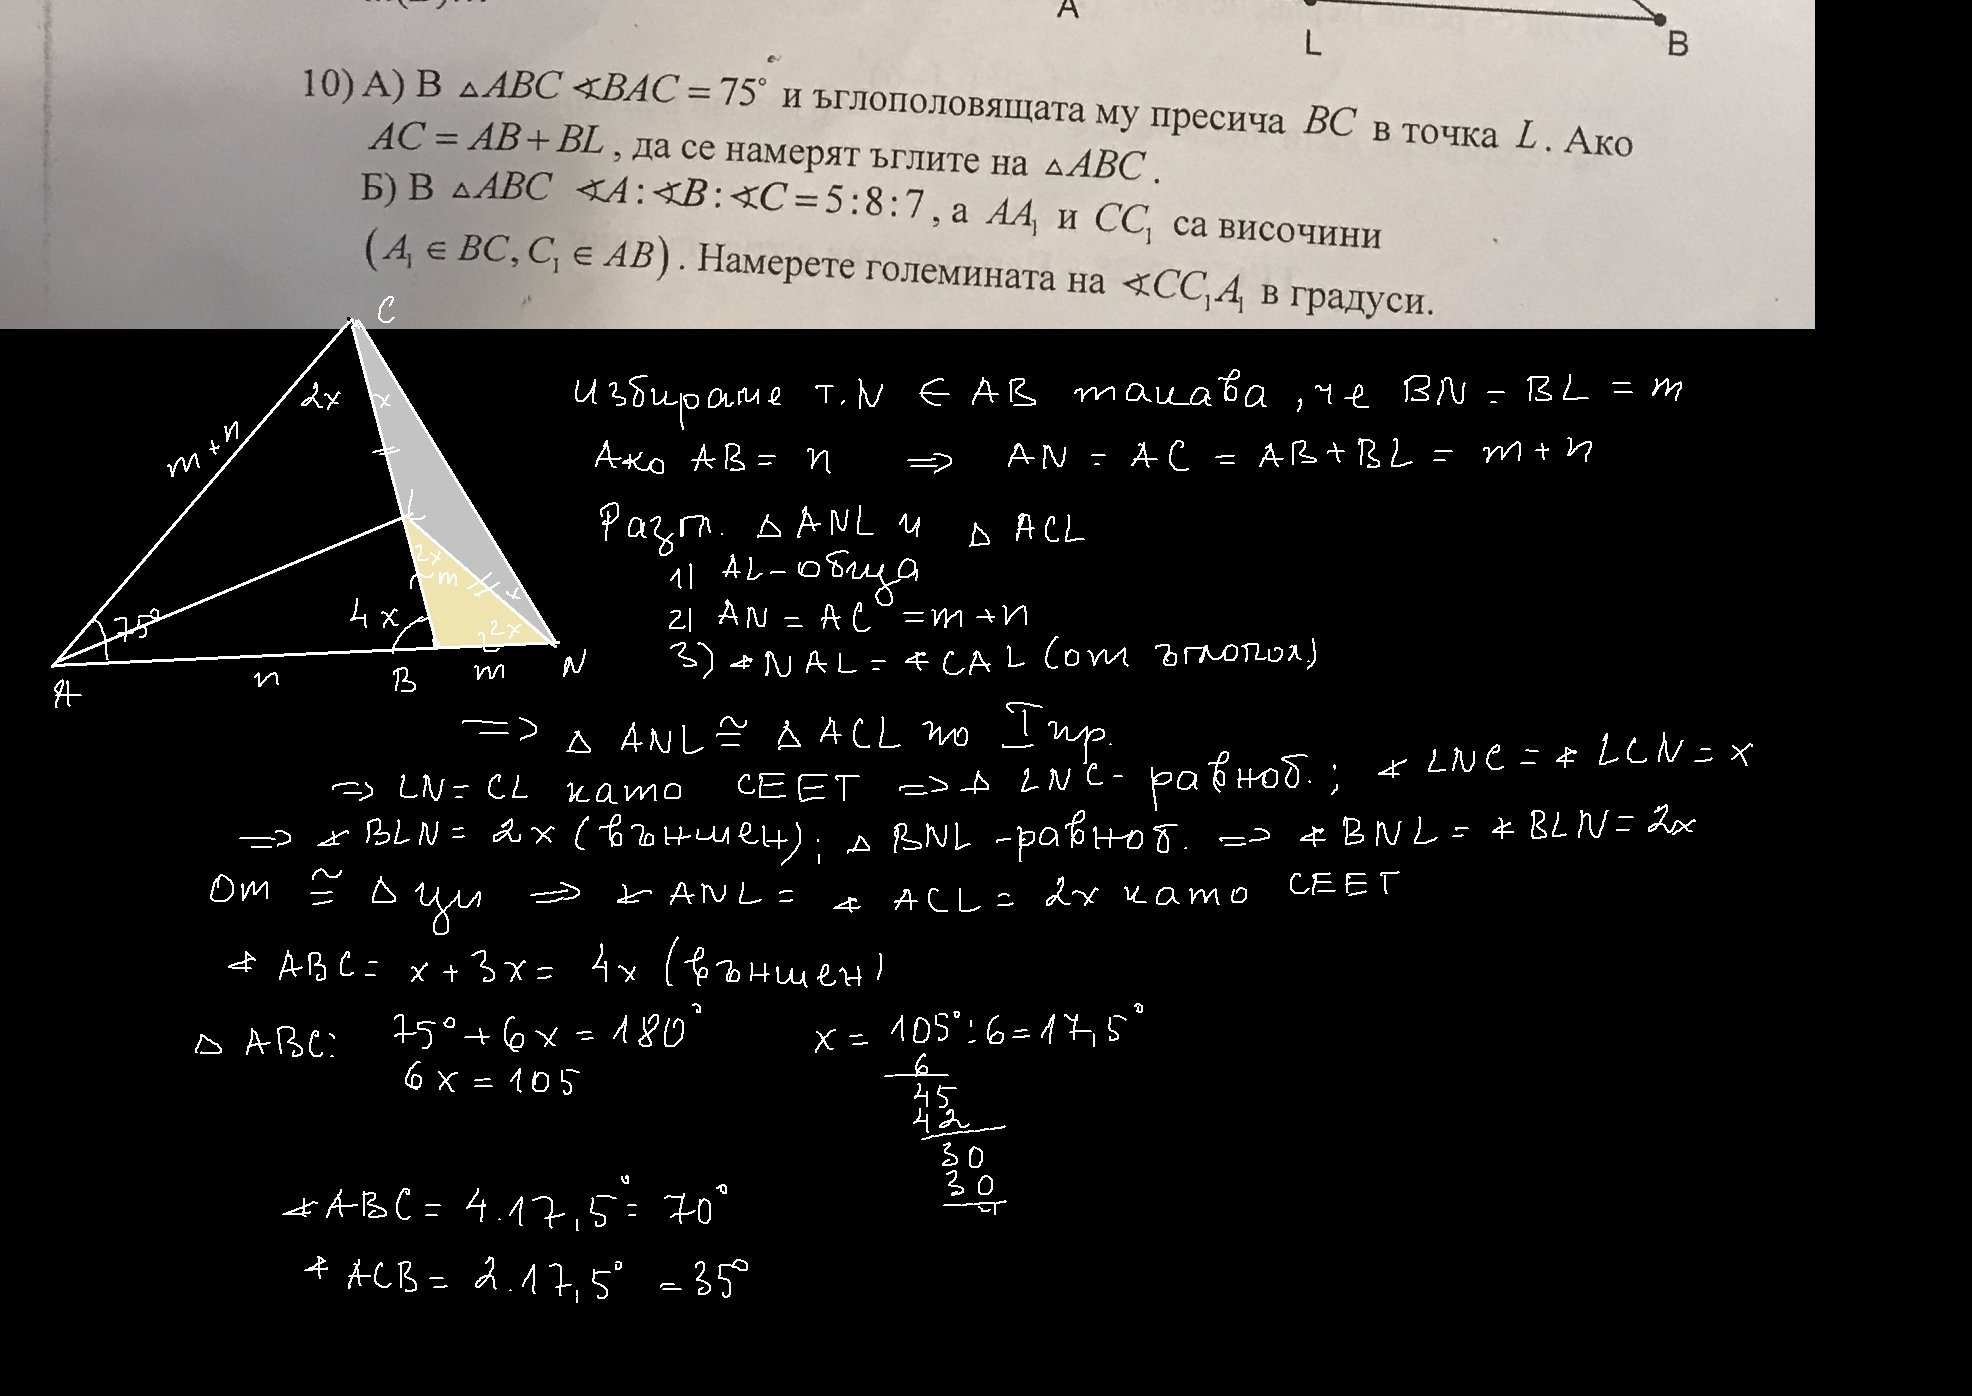 A
L
B
10) А) В △ABC ∢BAC = 75° и ъглополовящата му пресича BC в точка L. Ако
AC = AB + BL, да се намерят ъглите на △ABC.
Б) В △ABC ∢A:∢B:∢C = 5:8:7, а AA₁ и CC₁ са височини
(A₁ ∈ BC, C₁ ∈ AB). Намерете големината на ∢CC₁A₁ в градуси.
C
2x x
m+n
L
2x
m
x
4x
75°
2x
A
n
B
m
N
Избираме т. N ∈ AB такава, че BN = BL = m
Ако AB = n ⇒ AN = AC = AB + BL = m + n
Разгл. △ ANL и △ ACL
1) AL - обща
2) AN = AC = m + n
3) ∢ NAL = ∢ CAL (от ъглопол)
⇒ △ ANL ≅ △ ACL по I пр.
⇒ LN = CL като СЕЕТ ⇒ △ LNC - равноб.; ∢ LNC = ∢ LCN = x
⇒ ∢ BLN = 2x (външен); △ BNL - равноб. ⇒ ∢ BNL = ∢ BLN = 2x
От ≅ △ ци ⇒ ∢ ANL = ∢ ACL = 2x като СЕЕТ
∢ ABC = x + 3x = 4x (външен)
△ ABC: 75° + 6x = 180° x = 105° : 6 = 17,5°
6x = 105
6
45
42
30
30
∢ ABC = 4.17,5° = 70°
∢ ACB = 2.17,5° = 35°